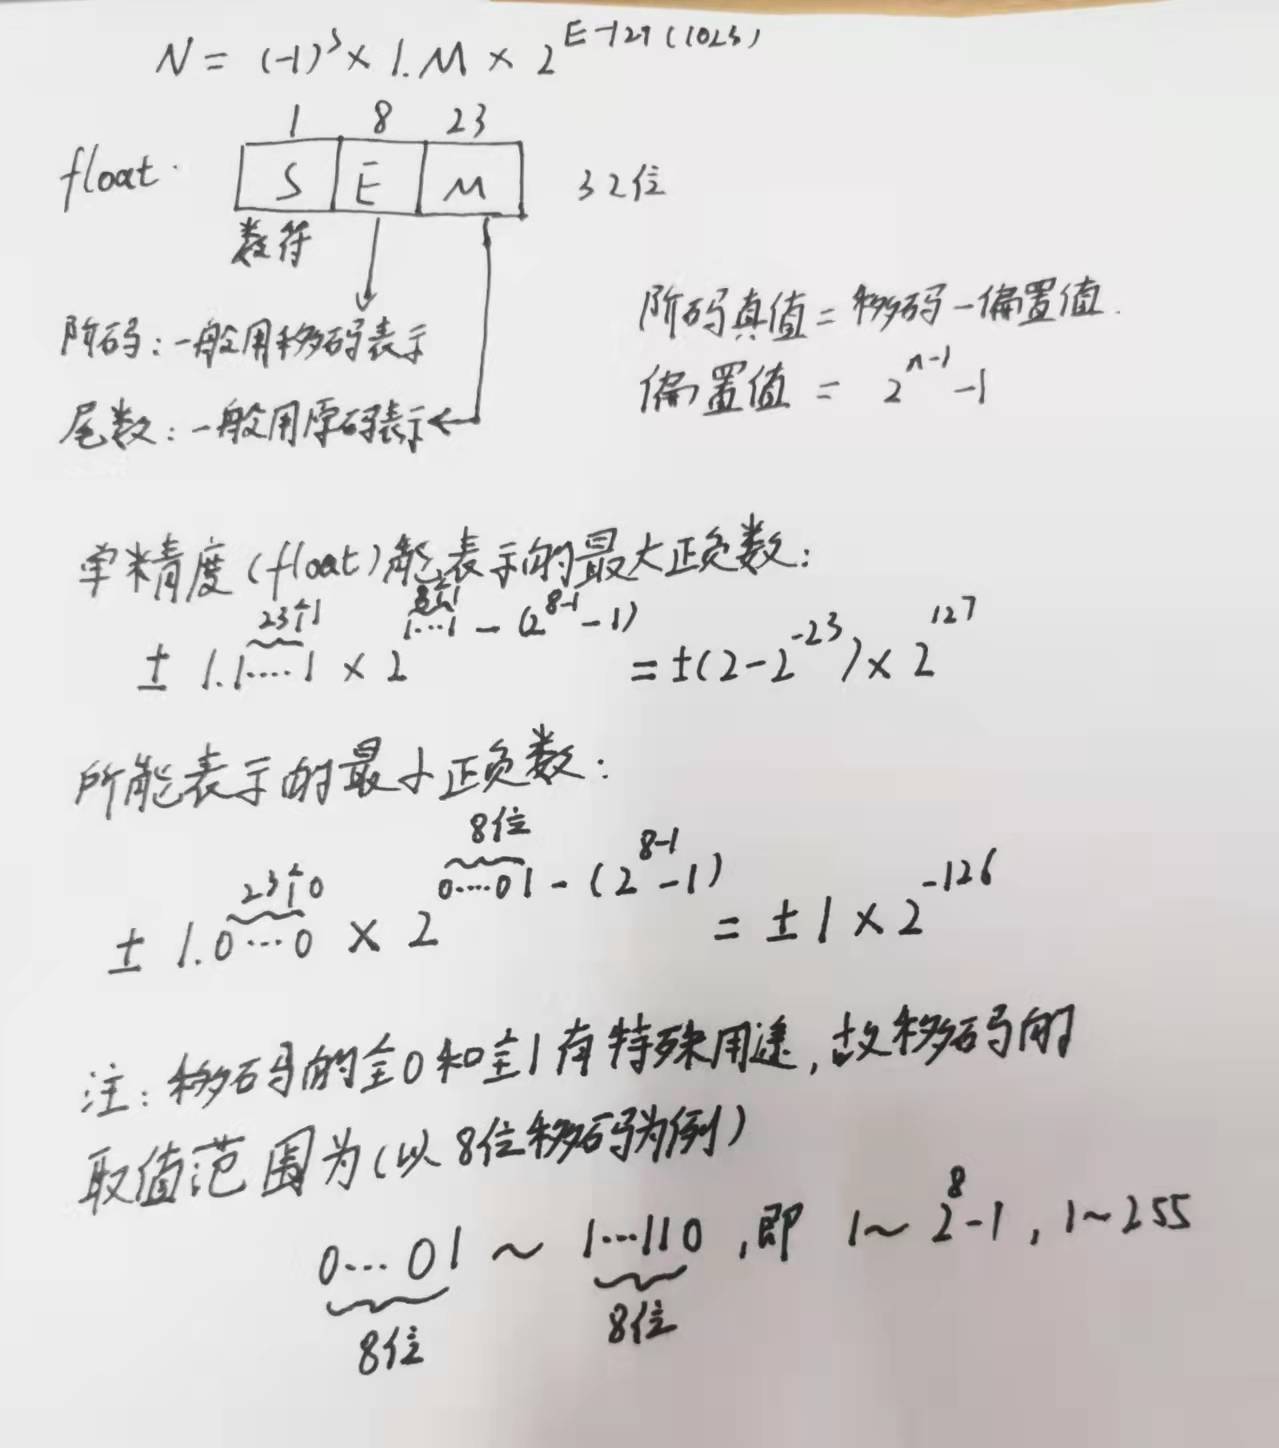 N = (-1)^S × 1.M × 2^(E-127(1023))
1 8 23
float S E M 32位
数符
阶码:一般用移码表示
尾数:一般用原码表示
阶码真值 = 移码 - 偏置值.
偏置值 = 2^(n-1) - 1
单精度(float)能表示的最大正负数:
23个1 8个1
± 1.1....1 × 2^(1...1 - (2^(8-1) - 1)) = ±(2 - 2^(-23)) × 2^127
所能表示的最小正负数:
23个0 8位
± 1.0...0 × 2^(0...01 - (2^(8-1) - 1)) = ± 1 × 2^(-126)
注:移码的全0和全1有特殊用途,故移码的
取值范围为(以8位移码为例)
0...01 ~ 1...110 ,即 1 ~ 2^8 - 1 , 1 ~ 255
8位 8位